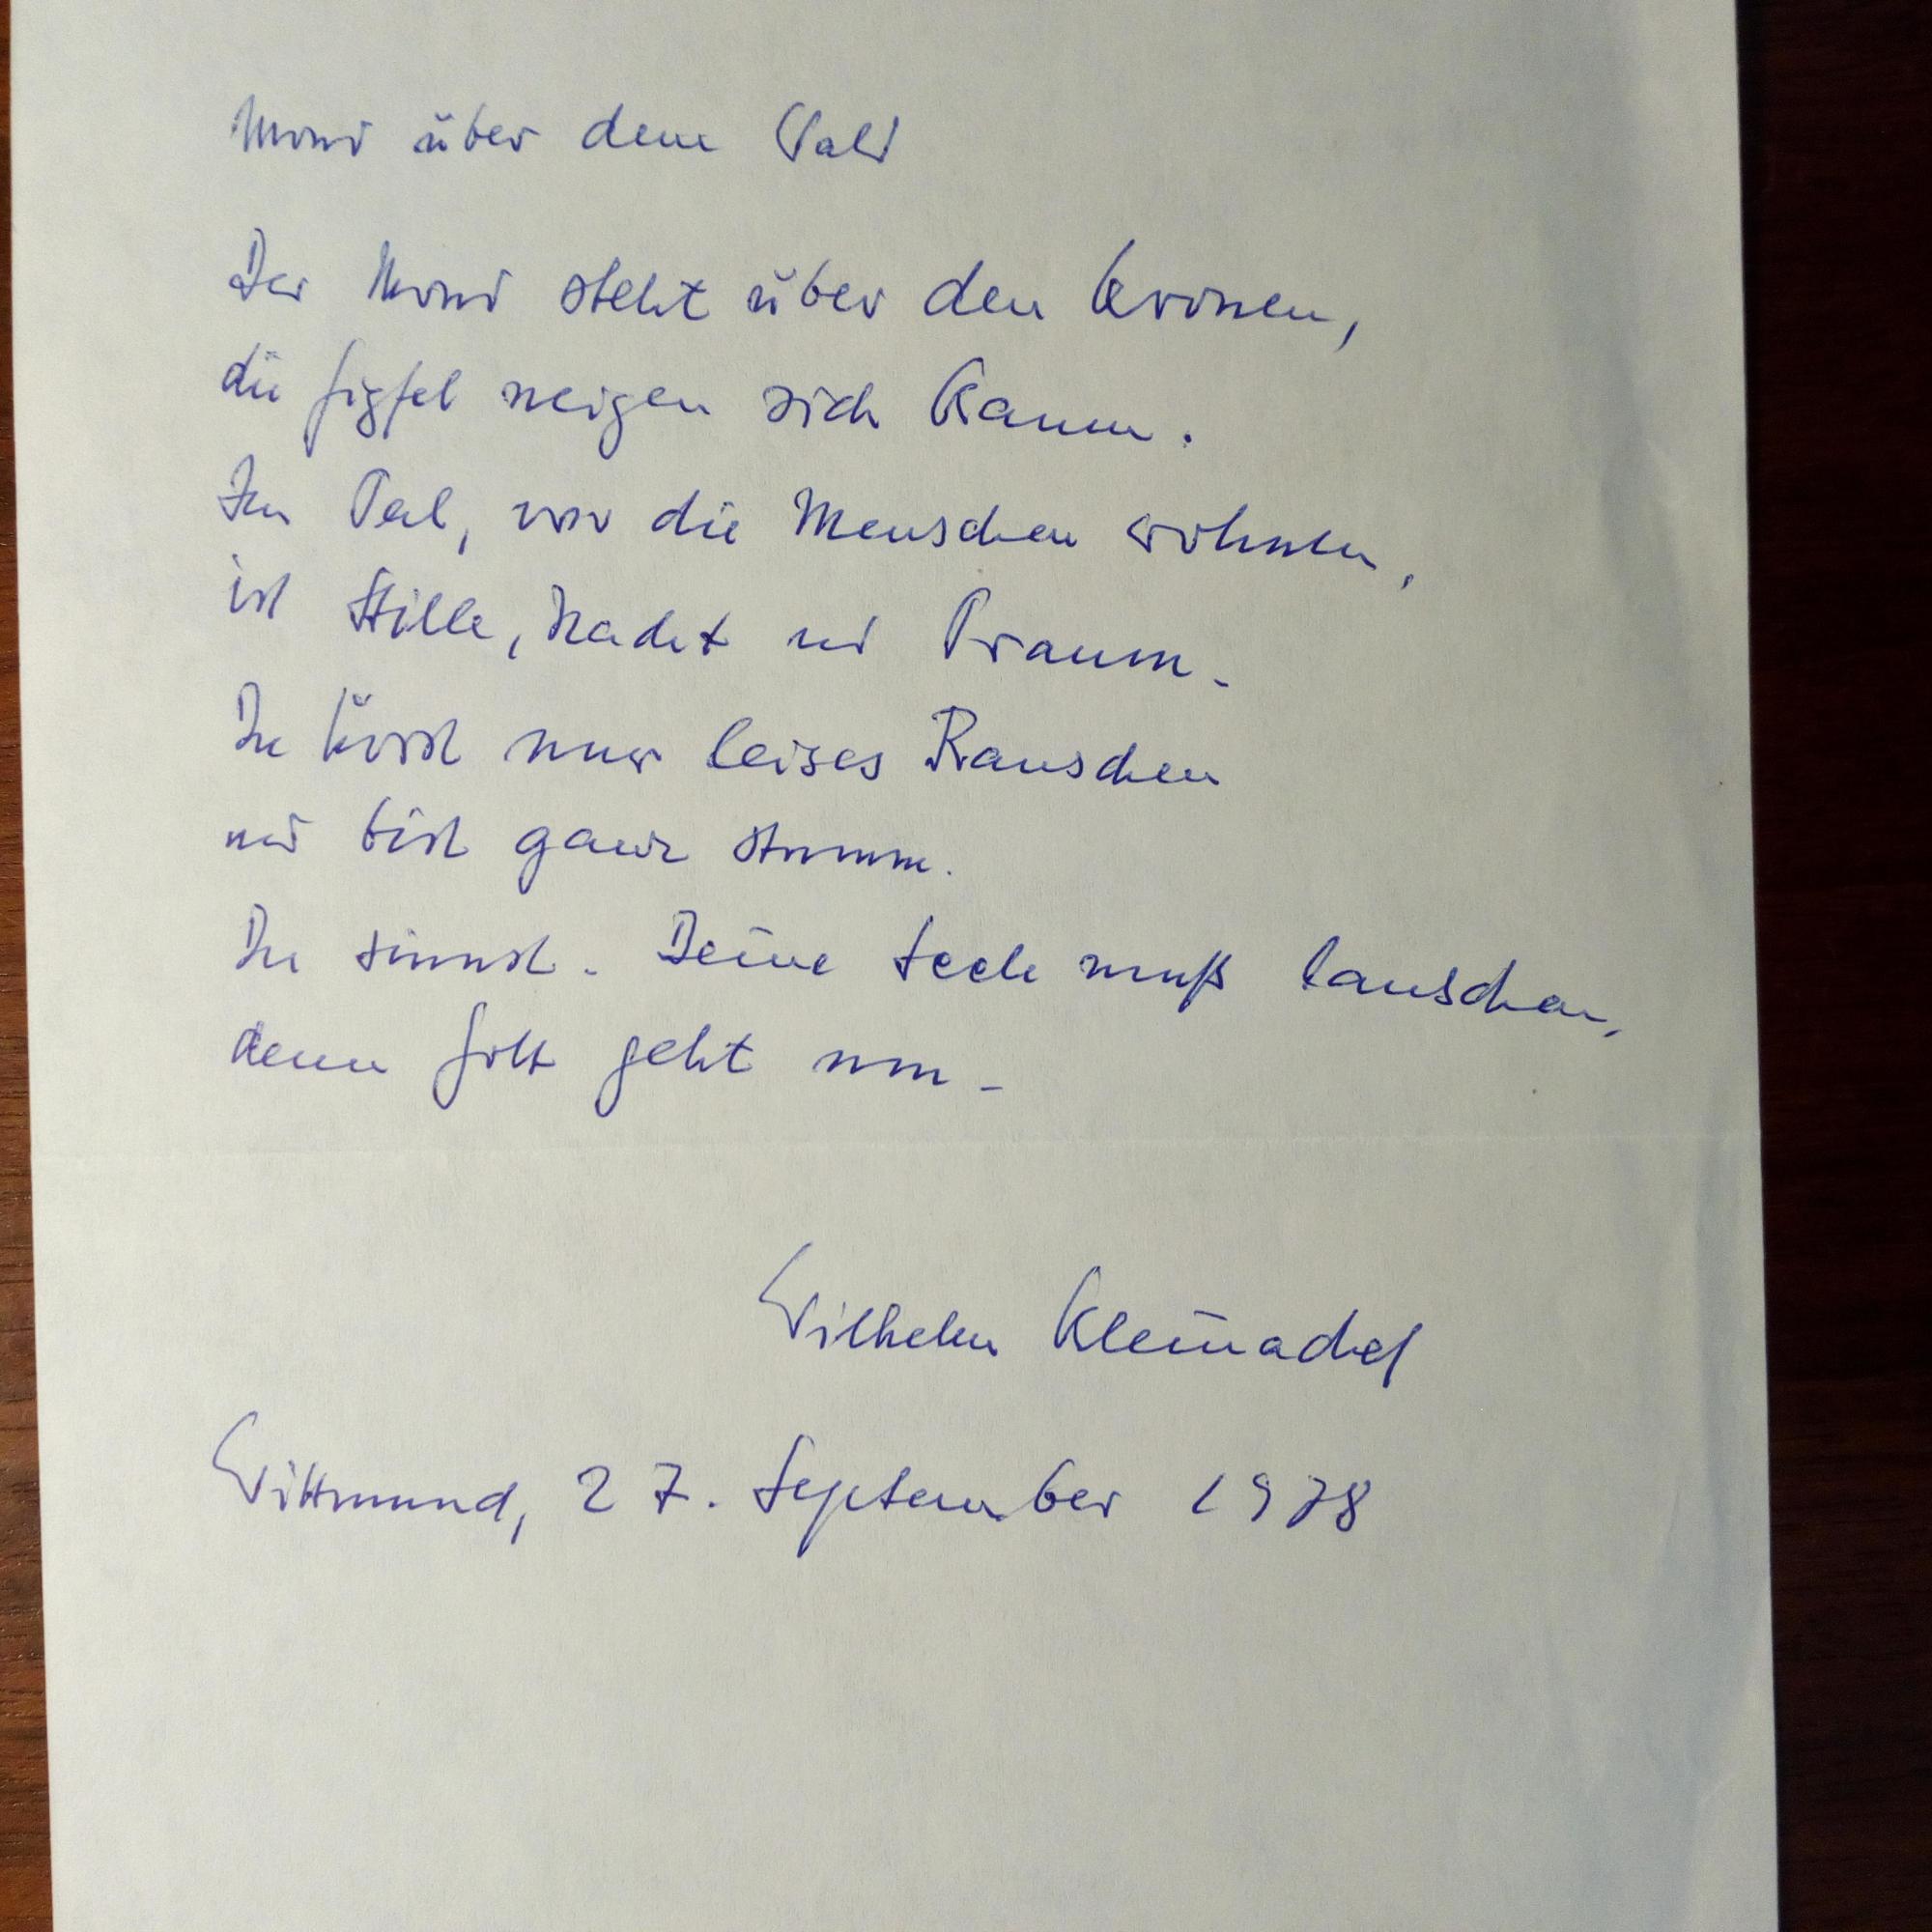 Mond über dem Wald
Der Mond steht über den Kronen,
die Gipfel neigen sich kaum.
Im Tal, wo die Menschen wohnen,
ist Stille, Nacht und Traum.
Du hörst nur leises Rauschen
und bist ganz stumm.
Du sinnst. Deine Seele muß lauschen,
denn Gott geht um.
Wilhelm Kleinadel
Wittmund, 27. September 1978